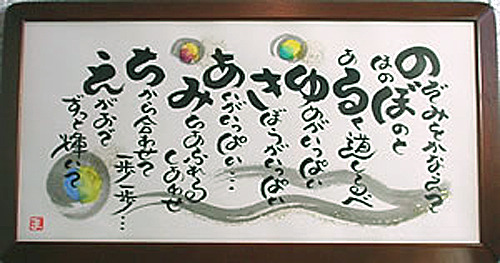 のぞみをかなえて
ほのぼのと
あるく道しるべ
ゆめがいっぱい
きぼうがいっぱい
あいがいっぱい…
みちあふれる
しあわせ
ちから合わせて
一歩一歩…
えがおで
ずっと輝いて